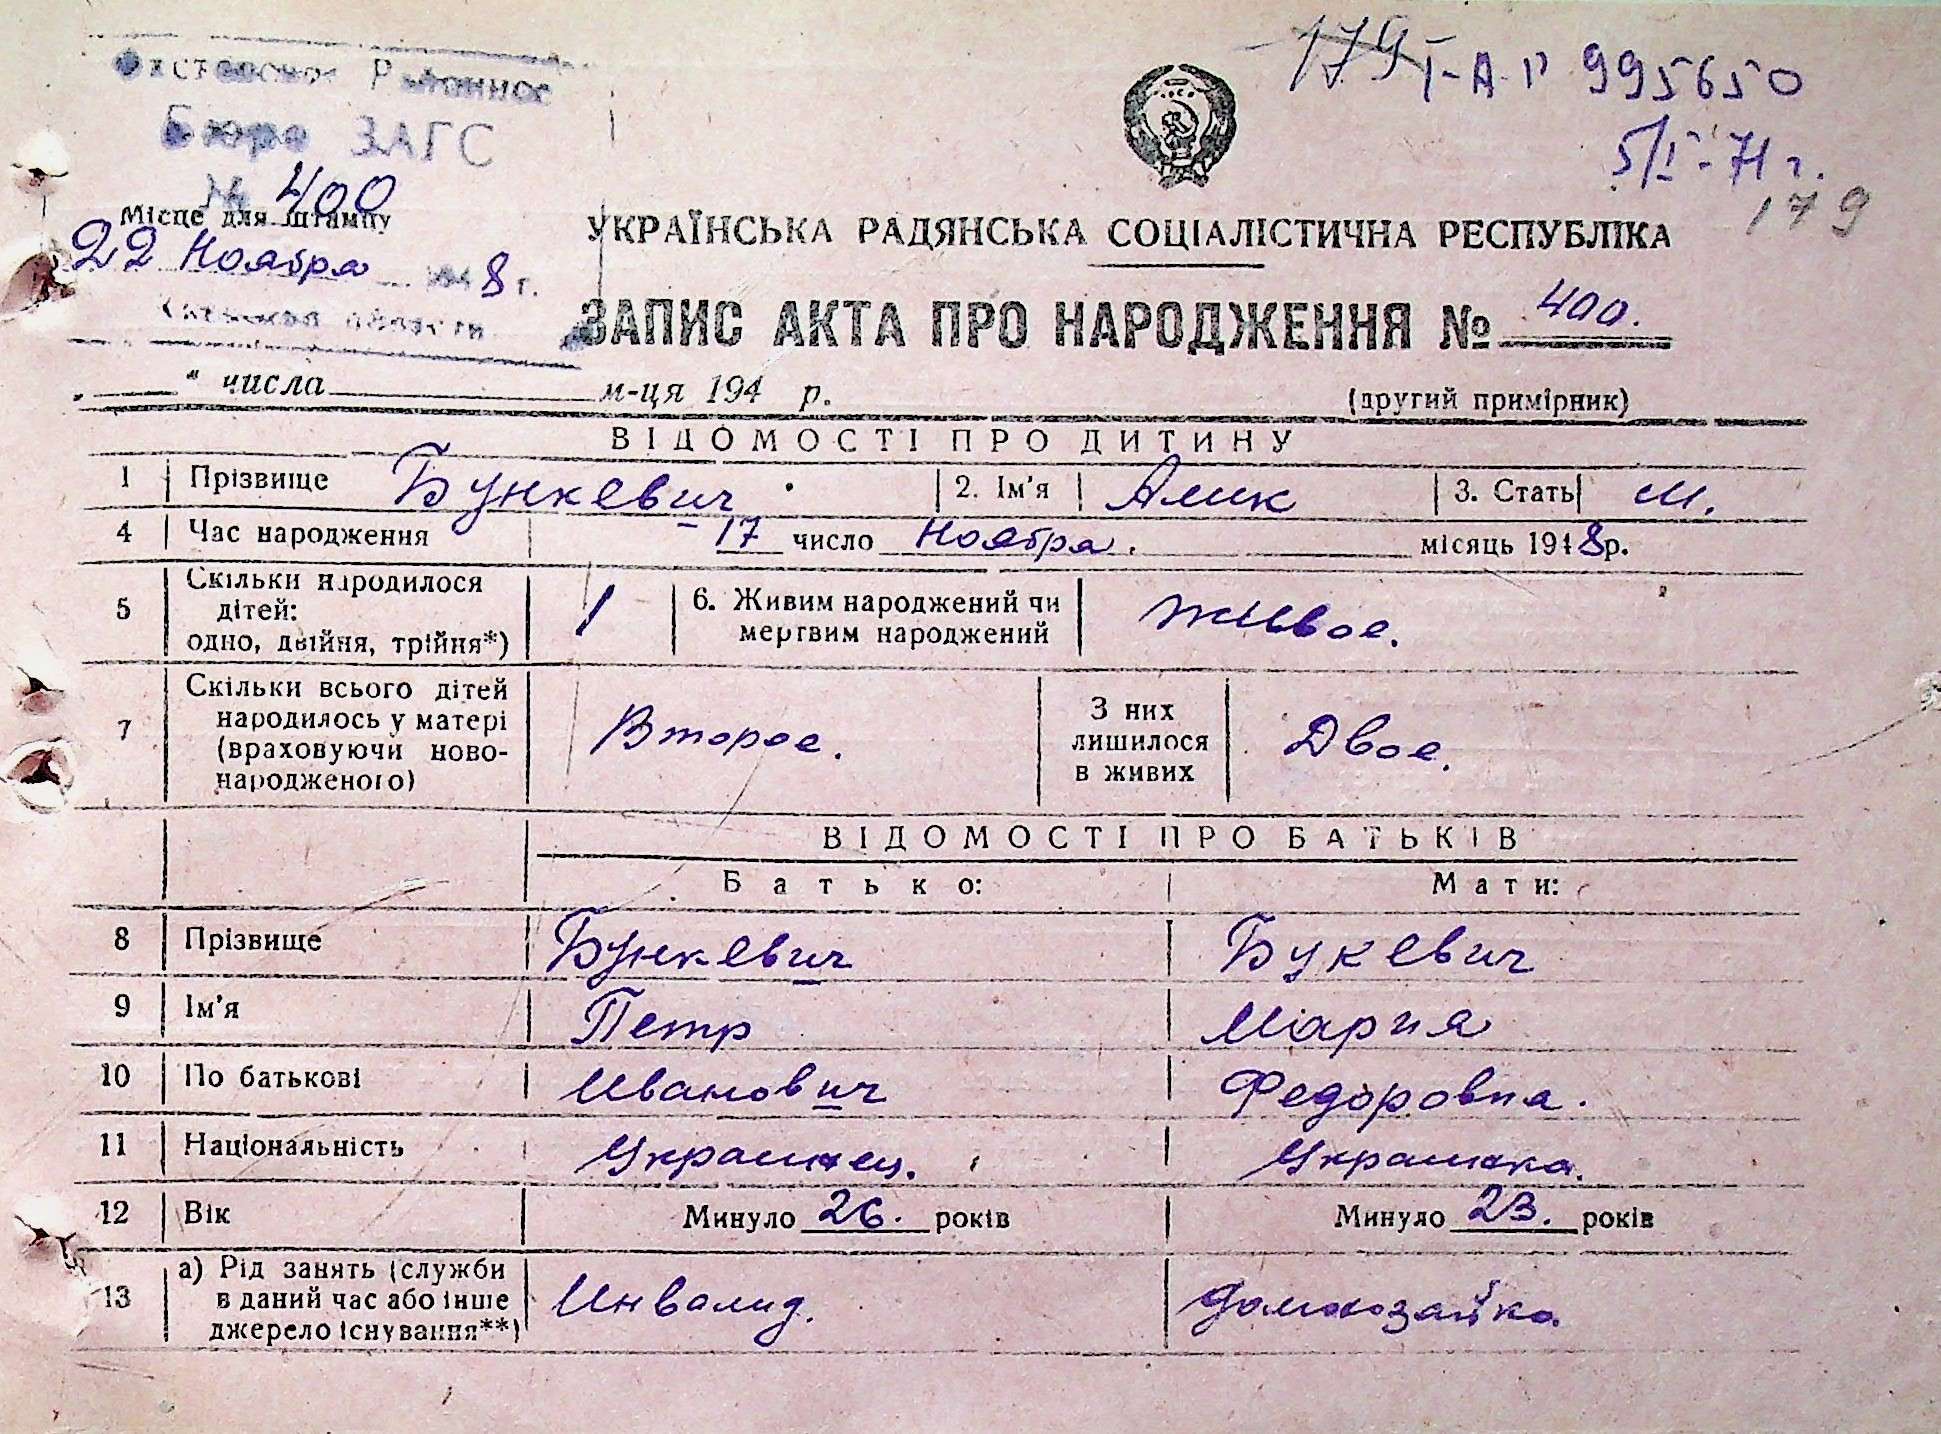 179 I-А-Р 995650
Районное
Бюро ЗАГС
5/I-71 г.
№ 400
179
Місце для штампу
22 Ноября 1948 г.
области
УКРАЇНСЬКА РАДЯНСЬКА СОЦІАЛІСТИЧНА РЕСПУБЛІКА
ЗАПИС АКТА ПРО НАРОДЖЕННЯ № 400.
„ “ числа м-ця 194 р.
(другий примірник)
ВІДОМОСТІ ПРО ДИТИНУ
1 Прізвище Бункевич. 2. Ім'я Алик 3. Стать М.
4 Час народження 17 число Ноября. місяць 1948 р.
5 Скільки народилося дітей: одно, двійня, трійня*) 1 6. Живим народжений чи мертвим народжений Живое.
7 Скільки всього дітей народилось у матері (враховуючи ново-народженого) Второе. З них лишилося в живих Двое.
ВІДОМОСТІ ПРО БАТЬКІВ
Батько: Мати:
8 Прізвище Бункевич Букевич
9 Ім'я Петр Мария
10 По батькові Иванович Федоровна.
11 Національність Украинец. Украинка.
12 Вік Минуло 26. років Минуло 23. років
13 а) Рід занять (служби в даний час або інше джерело існування**) Инвалид. домохозайка